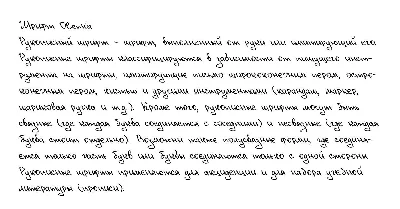 Шрифт Svetka
Рукописный шрифт - шрифт, выполненный от руки или имитирующий его.
Рукописные шрифты классифицируются в зависимости от пишущего инст-
румента на шрифты, имитирующие письмо ширококонечным пером, остро-
конечным пером, кистью и другими инструментами (карандаш, маркер,
шариковая ручка и т.д.). Кроме того, рукописные шрифты могут быть
связные (где каждая буква соединяется с соседними) и несвязные (где каждая
буква стоит отдельно). Возможны также полусвязные формы, где соединя-
ется только часть букв или буквы соединяются только с одной стороны.
Рукописные шрифты применяются для акциденции и для набора учебной
литературы (прописи).